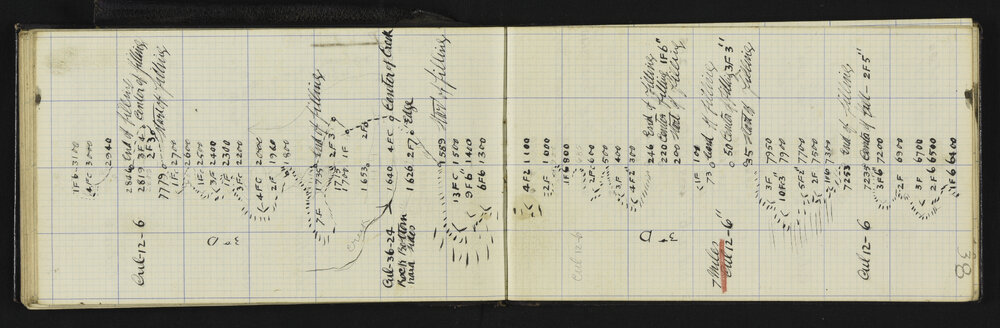 1F6-3100
4FC 3000
2940
2846 End of filling
Cul-12-6 2819 Center of filling
2F3
Start of filling
1F. 2700
2600
1F. 2500
3F 2400
1F 2300
3FC 2200
3rd D
4FC 2000
2F 1900
1800
7F 1735 End of filling
2F3
1700 1F
1653 2F0
Cul-36-24 1640 4FC Center of Creek
Rock Bottom 1626 2F7 Edge
hard sides
1589 Start of filling
13FC 1500
9F6 1400
6F6 1300
4F2 1100
2F 1000
1F6 800
Cul 12-6
2F 600
500
3F 400
4F2 300
246 End of Filling
220 Center filling 1F6"
200 Start of filling
3rd D
1F 100
73 End of filling
7 Miles
Cul 12-6" 50 Center of filling 3F3"
35 Start of filling
7950
3F 7900
10F3
7700
5F2 7600
2F 7500
1F6 7300
7253 End of filling
Cul 12-6 7235 Center of Cul- 2F5"
3F6 7200
2F 6900
3F 6700
2F6 6500
1F6 6400
38